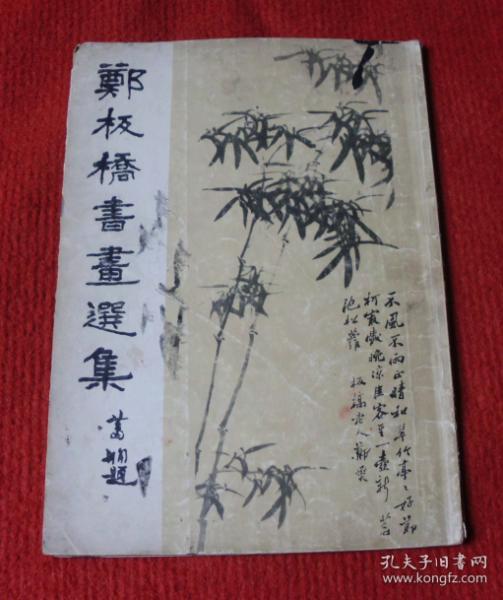 鄭板橋書畫選集
題
不風不雨正晴和翠竹亭〻好節
柯最愛晚涼佳客至一壺新茗
泡松蘿 板橋老人鄭燮
孔夫子旧书网
www.kongfz.com